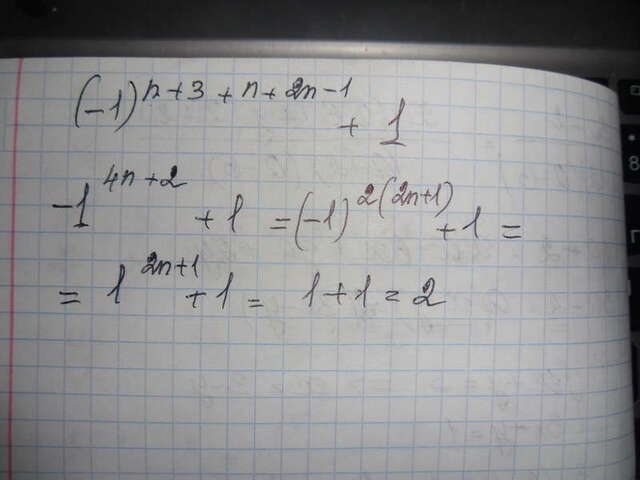 (-1)^{n+3+n+2n-1} + 1
-1^{4n+2} + 1 = (-1)^{2(2n+1)} + 1 =
= 1^{2n+1} + 1 = 1 + 1 = 2